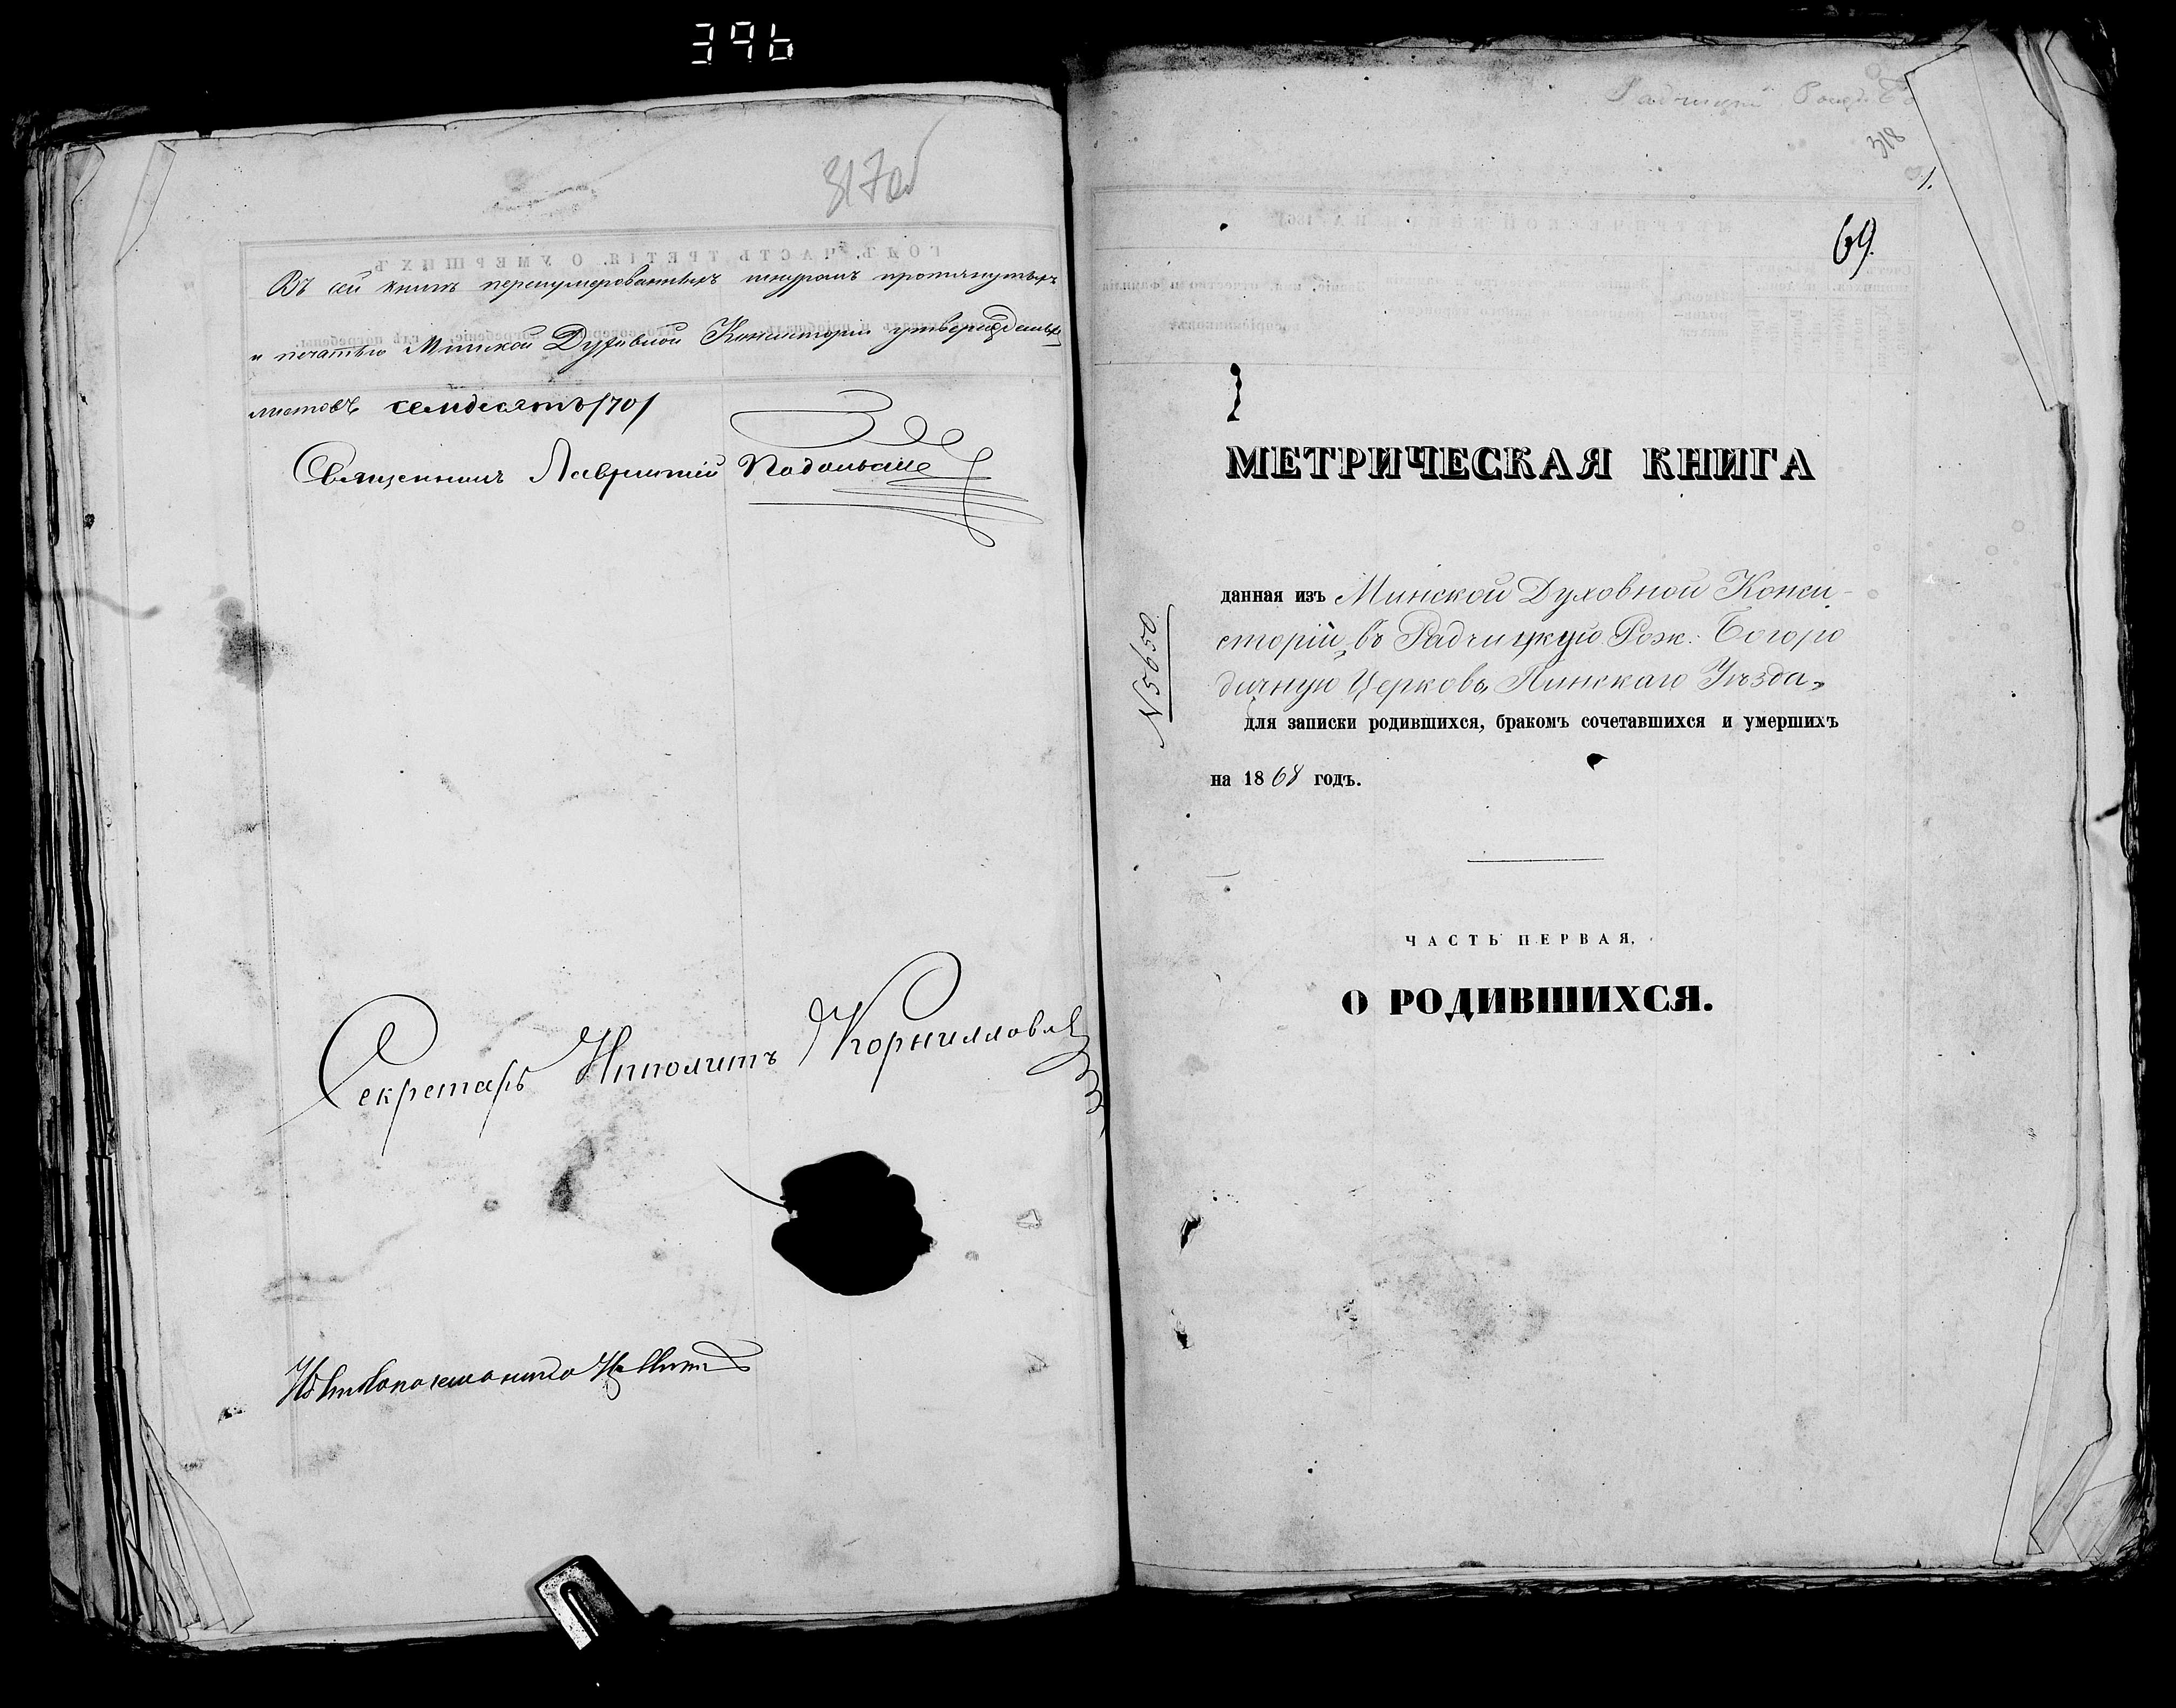 396
317об
Въ сей книгѣ перенумерованныхъ шнуромъ протянутыхъ
и печатью Минской Духовной Консисторіи утвержденныхъ
листовъ семдесятъ /70/
Священникъ Лаврентій Подольскій
Секретарь Ипполитъ Корниллов
318
1.
69.
МЕТРИЧЕСКАЯ КНИГА
данная изъ Минской Духовной Конси-
сторіи, въ Радчицкую Рож: Богоро
дичную Церковь, Пинскаго Уѣзда,
для записки родившихся, бракомъ сочетавшихся и умершихъ
на 1868 годъ.
N 5650
ЧАСТЬ ПЕРВАЯ,
О РОДИВШИХСЯ.